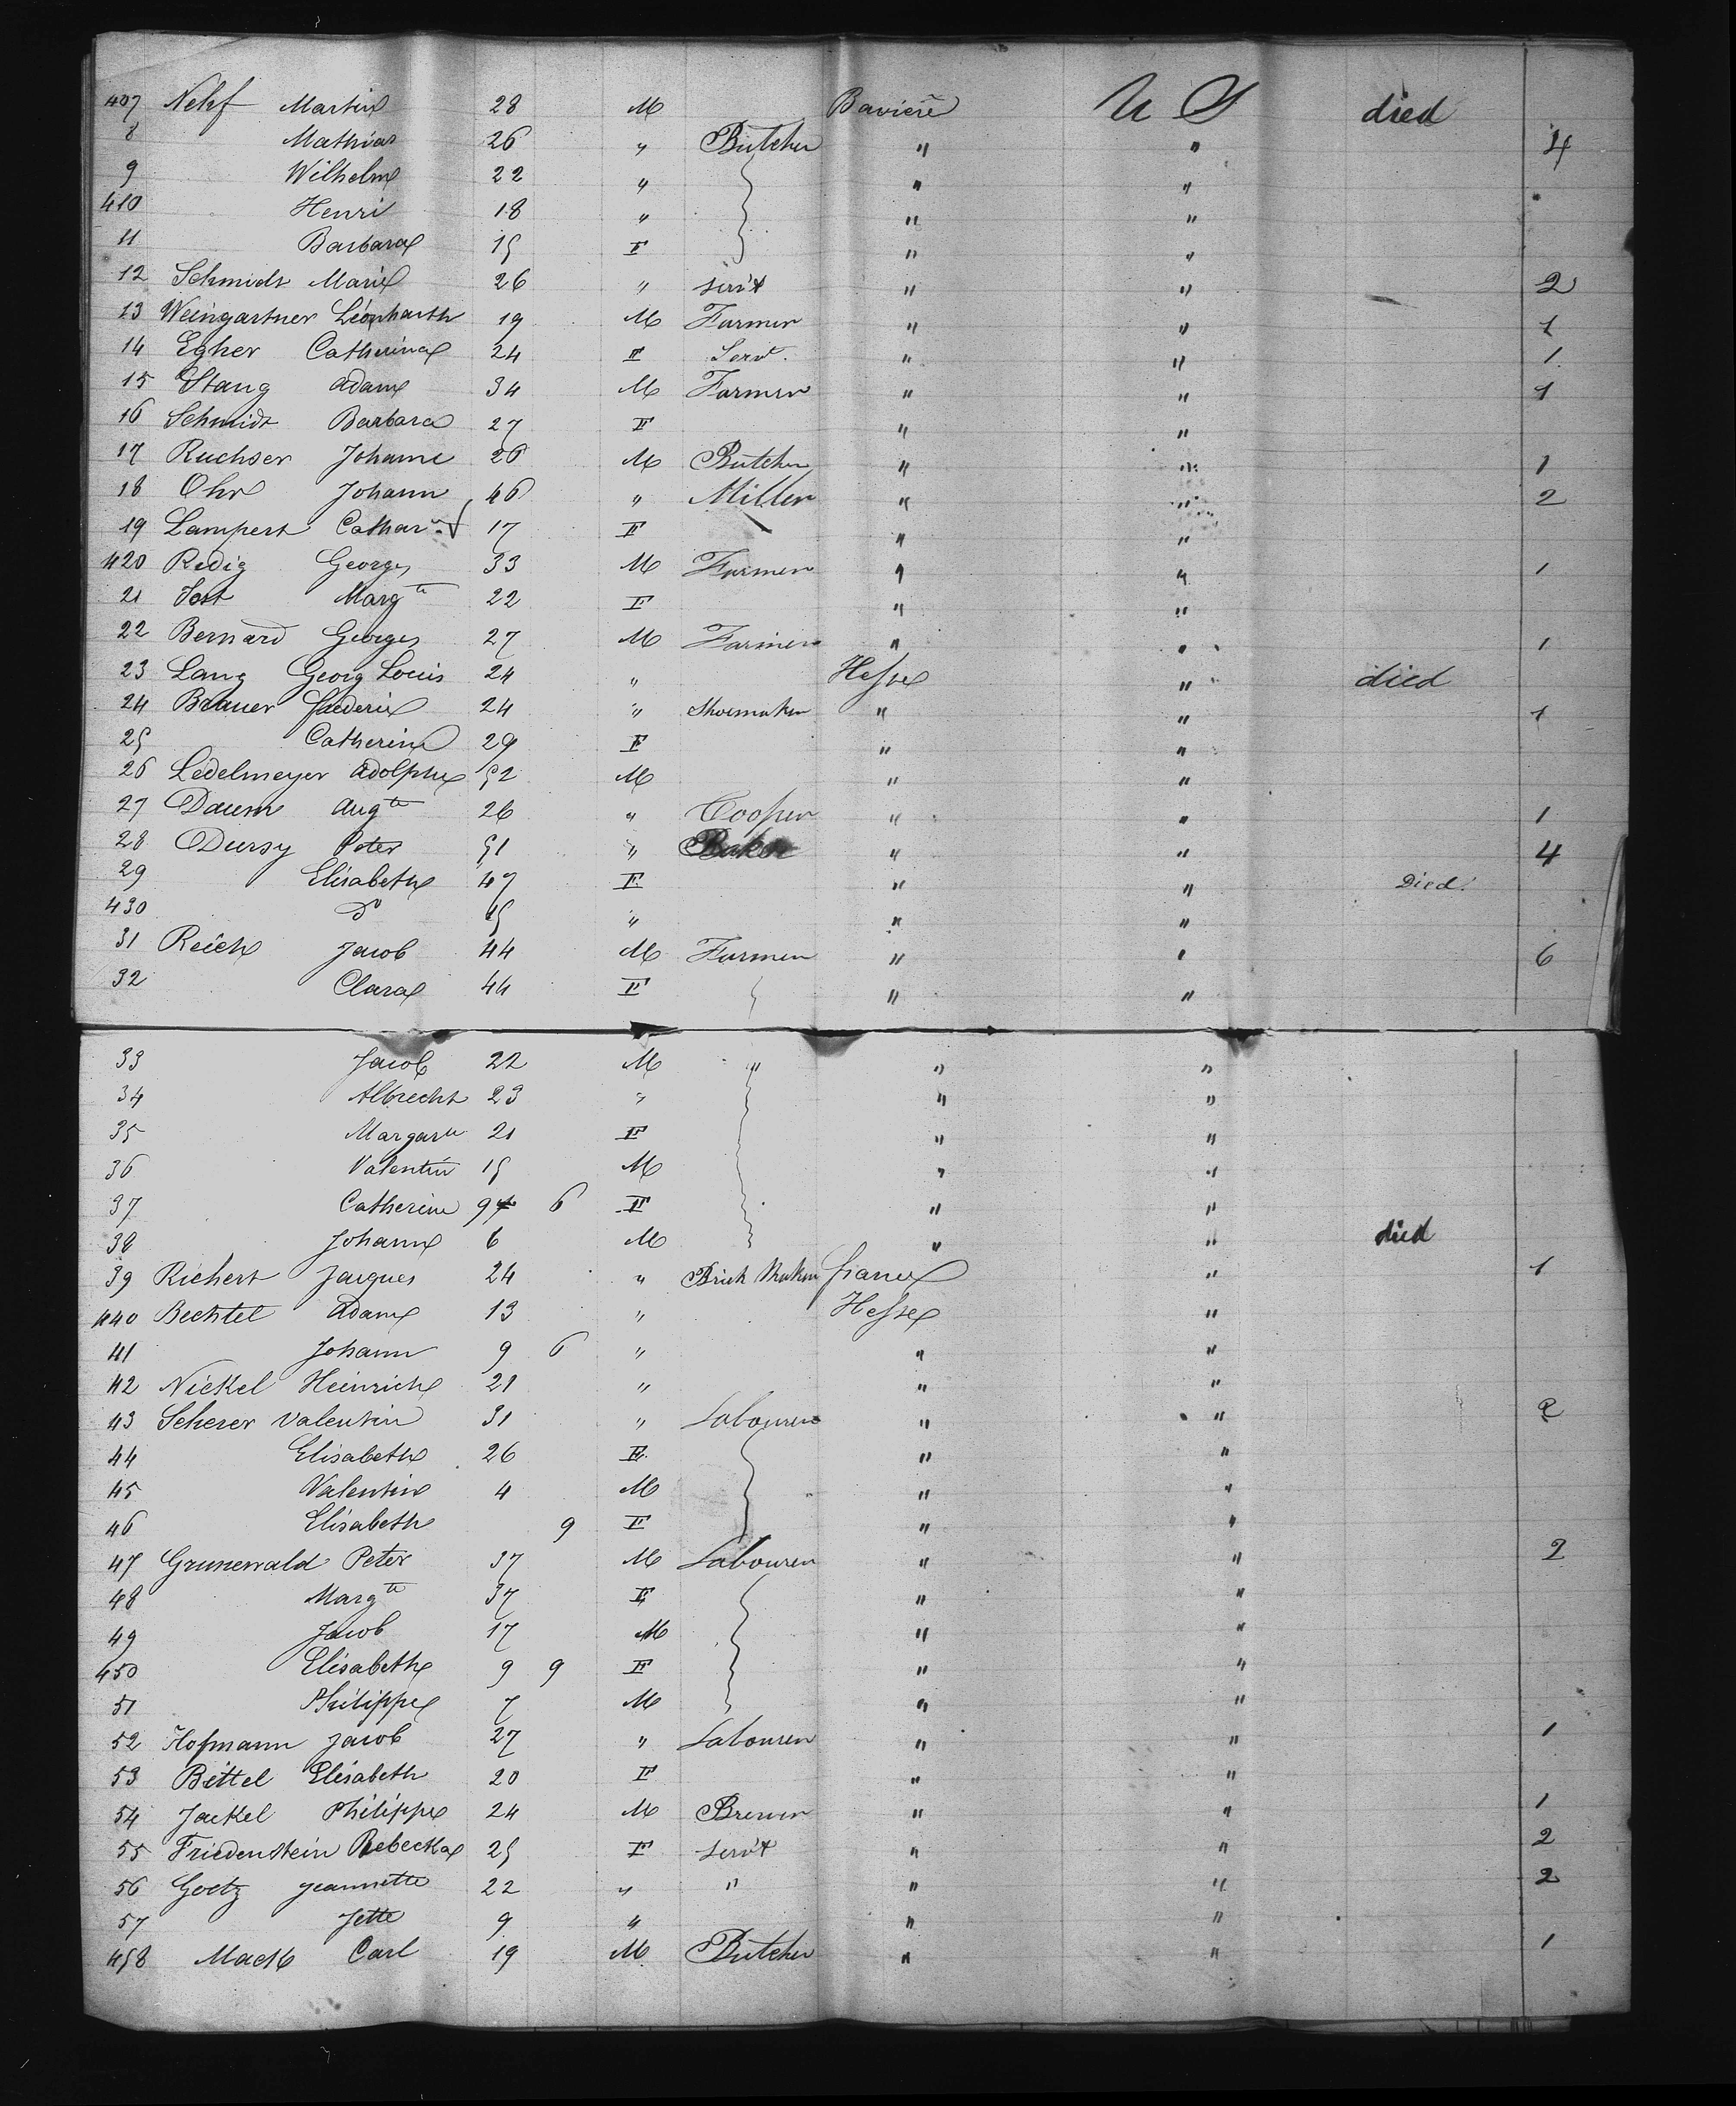 407 Nehf Martin 28 M Baviere U S died
8 Mathias 26 " Butcher " " 4
9 Wilhelm 22 " " "
410 Henri 18 " " "
11 Barbara 15 F " "
12 Schmidt Marie 26 " serv't " " 2
13 Weingartner Léonharth 19 M Farmer " " 1
14 Egher Catherina 24 F Servt. " " 1
15 Stang Adam 34 M Farmer " " 1
16 Schmidt Barbara 27 F " "
17 Ruchser Johann 26 M Butcher " " 1
18 Ohr Johann 46 " Miller " " 2
19 Lampert Cathar 17 F " "
420 Redig Georges 33 M Farmer " " 1
21 Jost Margte 22 F " "
22 Bernard Georges 27 M Farmer " " 1
23 Lang Georg Louis 24 " Hesse " died
24 Brauer frederic 24 " Shoemaker " " 1
25 Catherine 29 F " "
26 Ledelmeyer Adolphe 52 M " "
27 Daum Augte 26 " Cooper " " 1
28 Dursy Peter 51 " Baker " " 4
29 Elisabeth 47 F " " Died.
430 do 15 " " "
31 Reich Jacob 44 M Farmer " " 6
32 Clara 44 F " "
33 Jacob 22 M " " "
34 Albrecht 23 " " "
35 Margarte 21 F " "
36 Valentin 15 M " "
37 Catherine 9 6 F " "
38 Johann 6 M " " died
39 Richert Jacques 24 " Brick Maker france " 1
440 Bechtel Adam 13 " Hesse "
41 Johann 9 6 " " "
42 Nickel Heinrich 21 " " "
43 Scherer Valentin 31 " Labourer " " 2
44 Elisabeth 26 F " "
45 Valentin 4 M " "
46 Elisabeth 9 F " "
47 Grunewald Peter 37 M Labourer " " 2
48 Margte 37 F " "
49 Jacob 17 M " "
450 Elisabeth 9 9 F " "
51 Philippe 7 M " "
52 Hofmann Jacob 27 " Labourer " " 1
53 Bittel Elisabeth 20 F " "
54 Jackel Philippe 24 M Brewer " " 1
55 Friedenstein Rebecka 25 F serv't " " 2
56 Goetz Jeannette 22 " " " " 2
57 Jette 9 " " "
458 Carl 19 M Butcher " " 1